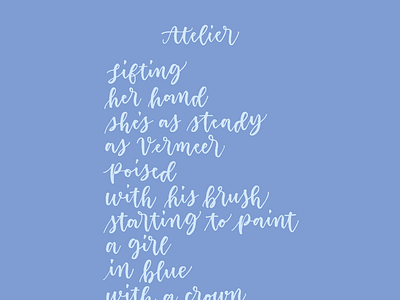 Atelier
Lifting
her hand
she's as steady
as Vermeer
Poised
with his brush
starting to paint
a girl
in blue
with a crown